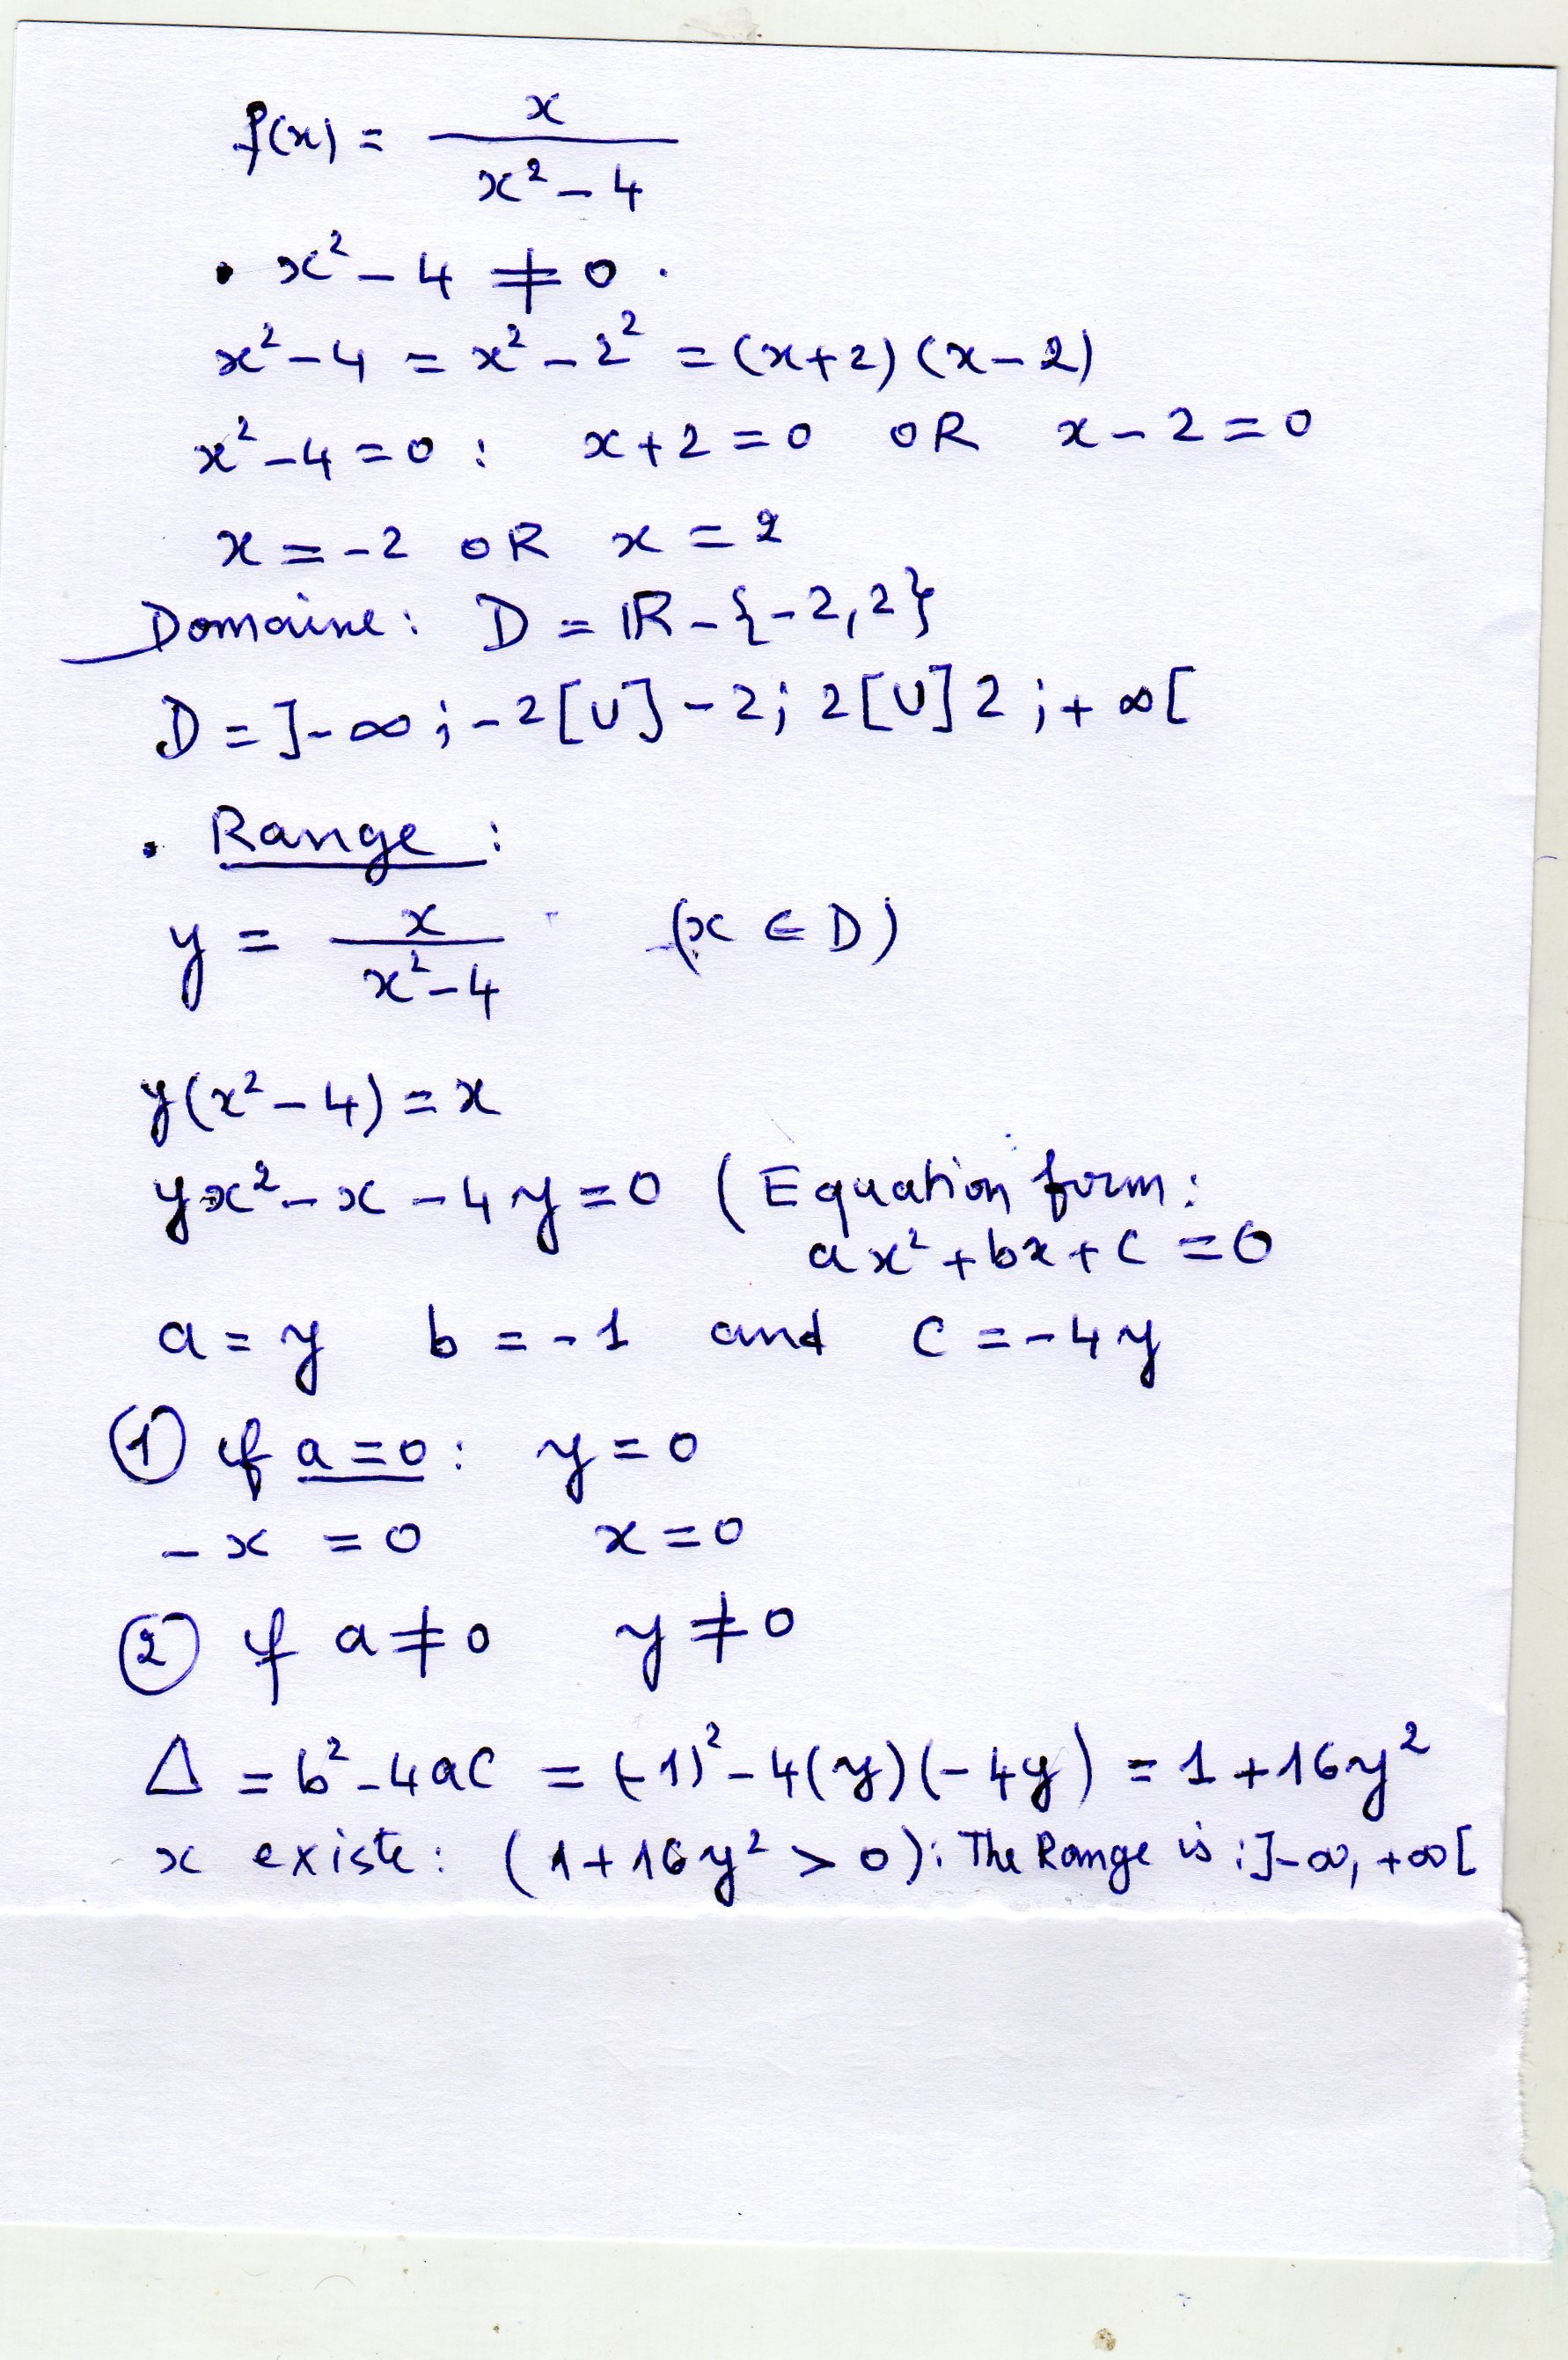 f(x) = x / (x² - 4)
• x² - 4 ≠ 0 .
x² - 4 = x² - 2² = (x+2)(x-2)
x² - 4 = 0 : x+2 = 0 OR x-2 = 0
x = -2 OR x = 2
Domaine : D = ℝ - {-2, 2}
D = ]-∞ ; -2[ U ]-2 ; 2[ U ]2 ; +∞[
• Range :
y = x / (x² - 4) (x ∈ D)
y(x² - 4) = x
yx² - x - 4y = 0 (Equation form :
ax² + bx + c = 0
a = y b = -1 and c = -4y
① if a = 0 : y = 0
- x = 0 x = 0
② if a ≠ 0 y ≠ 0
Δ = b² - 4ac = (-1)² - 4(y)(-4y) = 1 + 16y²
x existe : (1 + 16y² > 0) : The Range is : ]-∞, +∞[